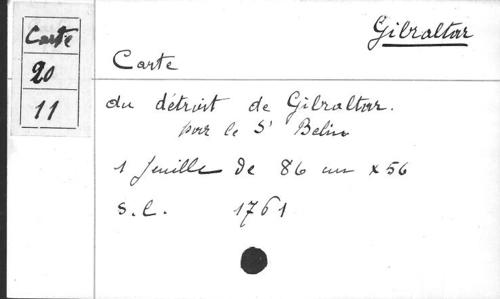 Carte
20
11
Gibraltar
Carte
du détroit de Gibraltar.
par le Sr Belin
1 feuille de 86 cm x 56
s.l. 1761